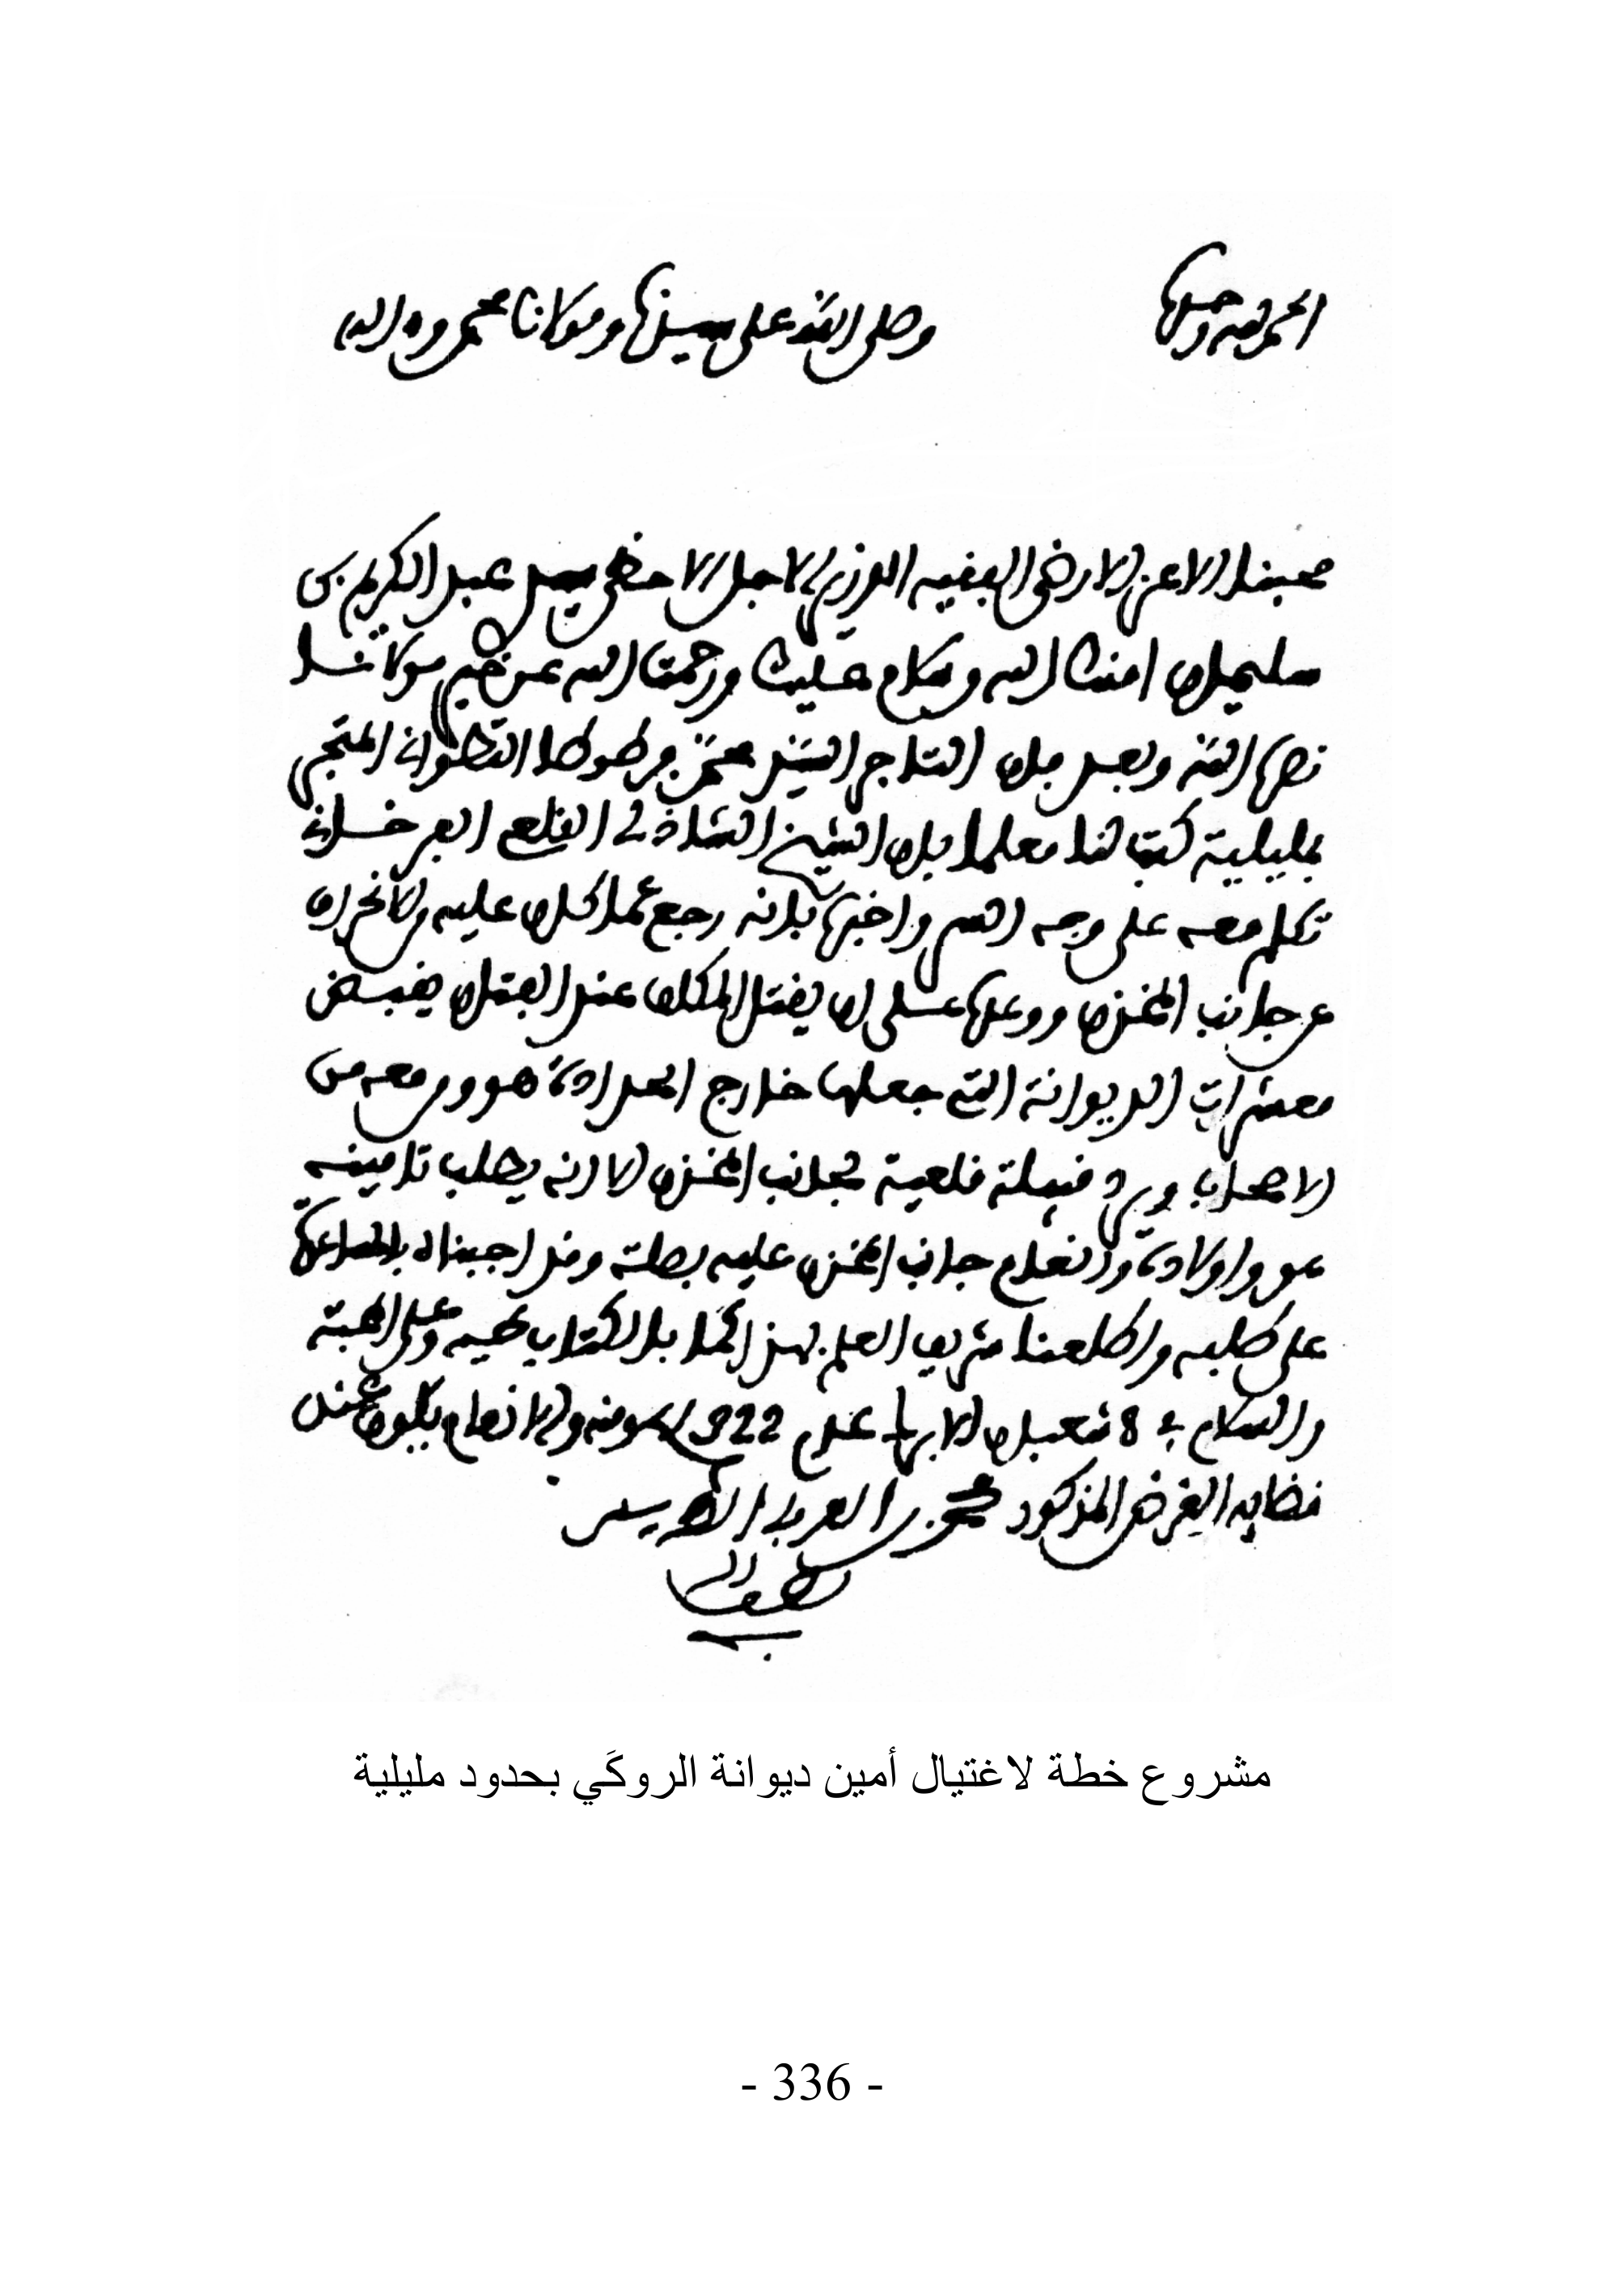 الحمد لله وحده
وصلى الله على سيدنا ومولانا محمد وءاله
محبنا الاعز الارضى الفقيه الاجل الاحظى سيد عبد الكريم بن
سليمان امنك الله وسلام عليك ورحمت الله عن خير مولانا
نصره الله وبعد فان التاجر السيد محمد التطواني المتجر
بمليلية كتب لنا معلما بان الشيخ الشاذلي القلعي الفرخاني
تكلم معه على وجه السر واخبره بانه رجع عما كان عليه والانحراف
عن جانب المخزن ووعده على ان يقتل المكلف عند الفتان بقبض
معشرات الديوانة التي جعلها خارج الحدادة هو ومن معه من
الاصحاب ويرد قبيلة قلعية لجانب المخزن الا انه يطلب تامينه
هو واولاده وانعام جانب المخزن عليه بصلة وقد اجبناه بالمساعدة
على طلبه واطلعنا شريف العلم بهذا بالكتاب وعلى المحبة
والسلام في 8 شعبان الابرك عام 1322 والانعام يكون عند
قضايه الغرض المذكور محمد بن العربي الطريس
لطف الله
به
مشروع خطة لاغتيال أمين ديوانة الروكَي بحدود مليلية
- 336 -